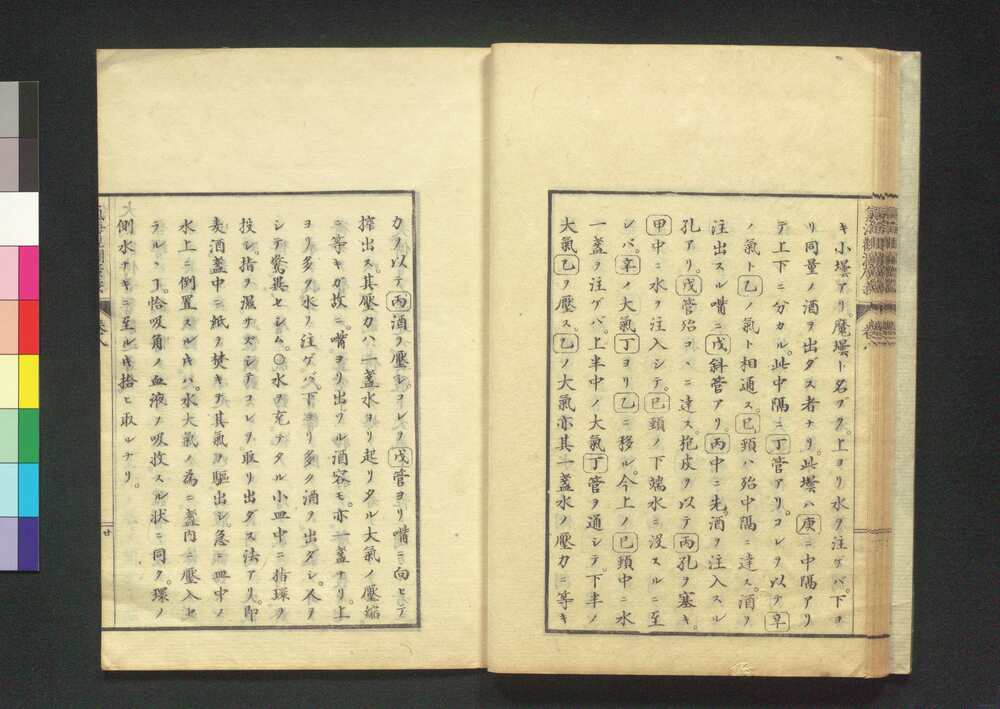 キ小壜アリ。魔壜ト名ヅク。上ヨリ水ヲ注ゲバ。下ヨ
リ同量ノ酒ヲ出ダス者ナリ。此壜ハ庚ニ中隔アリ
テ上下ニ分カル。此中隔ニ丁管アリ。コレヲ以テ辛
ノ氣ト乙ノ氣ト相通ス。已頸ハ殆中隔ニ達ス。酒ヲ
注出スル嘴ニ戊斜管アリ。丙中ニ先。酒ヲ注入スル
孔アリ。戊管殆コヽニ達ス。抱皮ヲ以テ丙孔ヲ塞ギ。
甲中ニ水ヲ注入シテ。已頸ノ下端水ニ沒スルニ至
レバ。辛ノ大氣丁ヨリ乙ニ移ル。今上ノ已頸中ニ水
一盞ヲ注ゲバ。上半中ノ大氣丁管ヲ通シテ。下半ノ
大氣乙ヲ壓ス。乙ノ大氣亦其一盞水ノ壓力ニ等キ
力ヲ以テ丙酒ヲ壓シ。コレヲ戊管ヨリ嘴ニ向ヒテ
搾出ス。其壓力ハ。一盞水ヨリ起リタル大氣ノ壓縮
ニ等キガ故ニ。嘴ヨリ出ヅル酒容モ。亦一盞ナリ。上
ヨリ多ク水ヲ注ゲバ。下ヨリ多ク酒ヲ出ダシ。人ヲ
シテ驚異セシム。○水ヲ充テタル小皿中ニ指環ヲ
投シ。指ヲ濕サズシテコレヲ取リ出ダス法アリ。即
麦酒盞中ニ紙ヲ焚キテ其氣ヲ驅出シ。急ニ皿中ノ
水上ニ倒置スル𪜈バ。水大氣ノ為ニ盞内ニ壓入セ
ラルヽヿ。恰吸角ノ血液ヲ吸收スル状ニ同ク。環ノ
側水ナキニ至ル𪜈拾ヒ取ルナリ。
氣海觀瀾廣義 卷八
卷八
廿